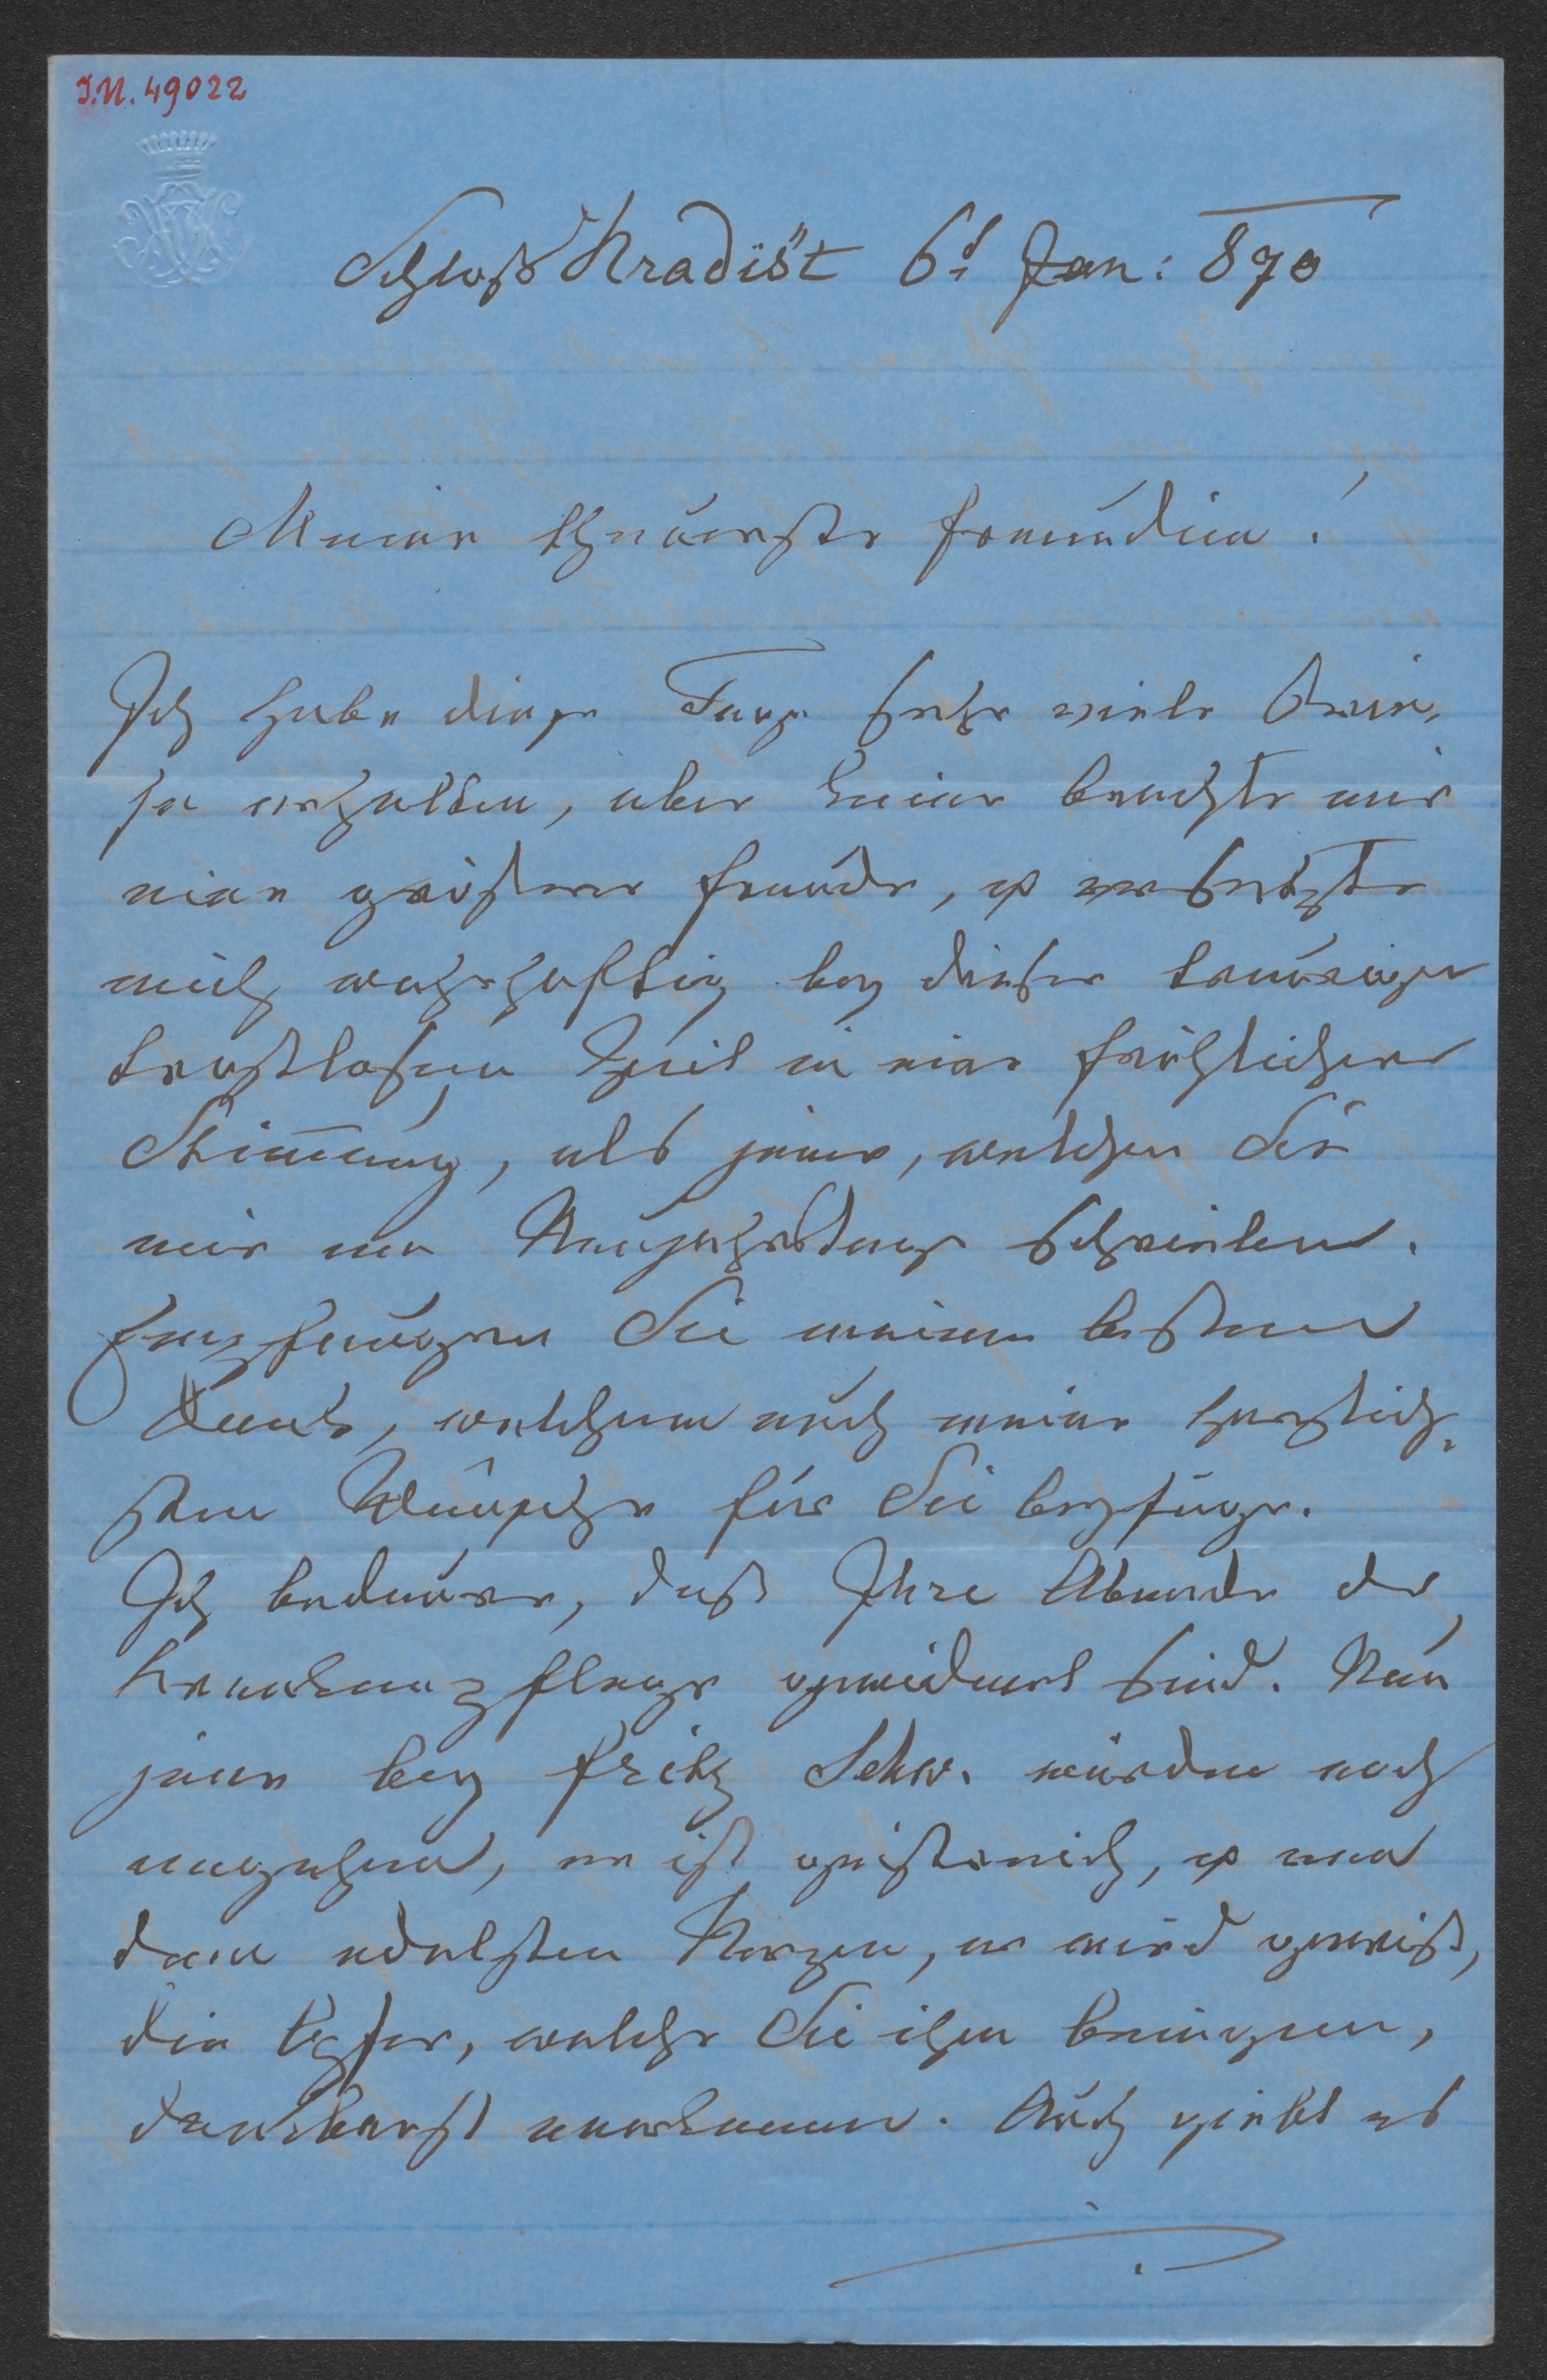 I.N. 49022
Schloß Hradišt 6t Jan: 870
Meine theuerste Freundin!
Ich habe diese Tage sehr viele Brie,
fe erhalten, aber keiner brachte mir
eine größere Freude, es versetzte
mich wahrhaftig bey dieser traurigen
trostlosen Zeit in eine fröhlichere
Stimmung, als jener, welchen Sie
mir am Neujahrstage schrieben.
Empfangen Sie meinen besten
Dank, welchem auch meine herzlich,
sten Wünsche für Sie beyfüge.
Ich bedauere, daß Ihre Abende der
Krankenpflege gewidmet sind. Nun
jene bey Fritz Schw. würden noch
angehen, er ist geistreich, es
dem edelsten Herzen, er wird gewiß,
die Opfer, welche Sie ihm bringen,
dankbarst anerkennen. Auch giebt es